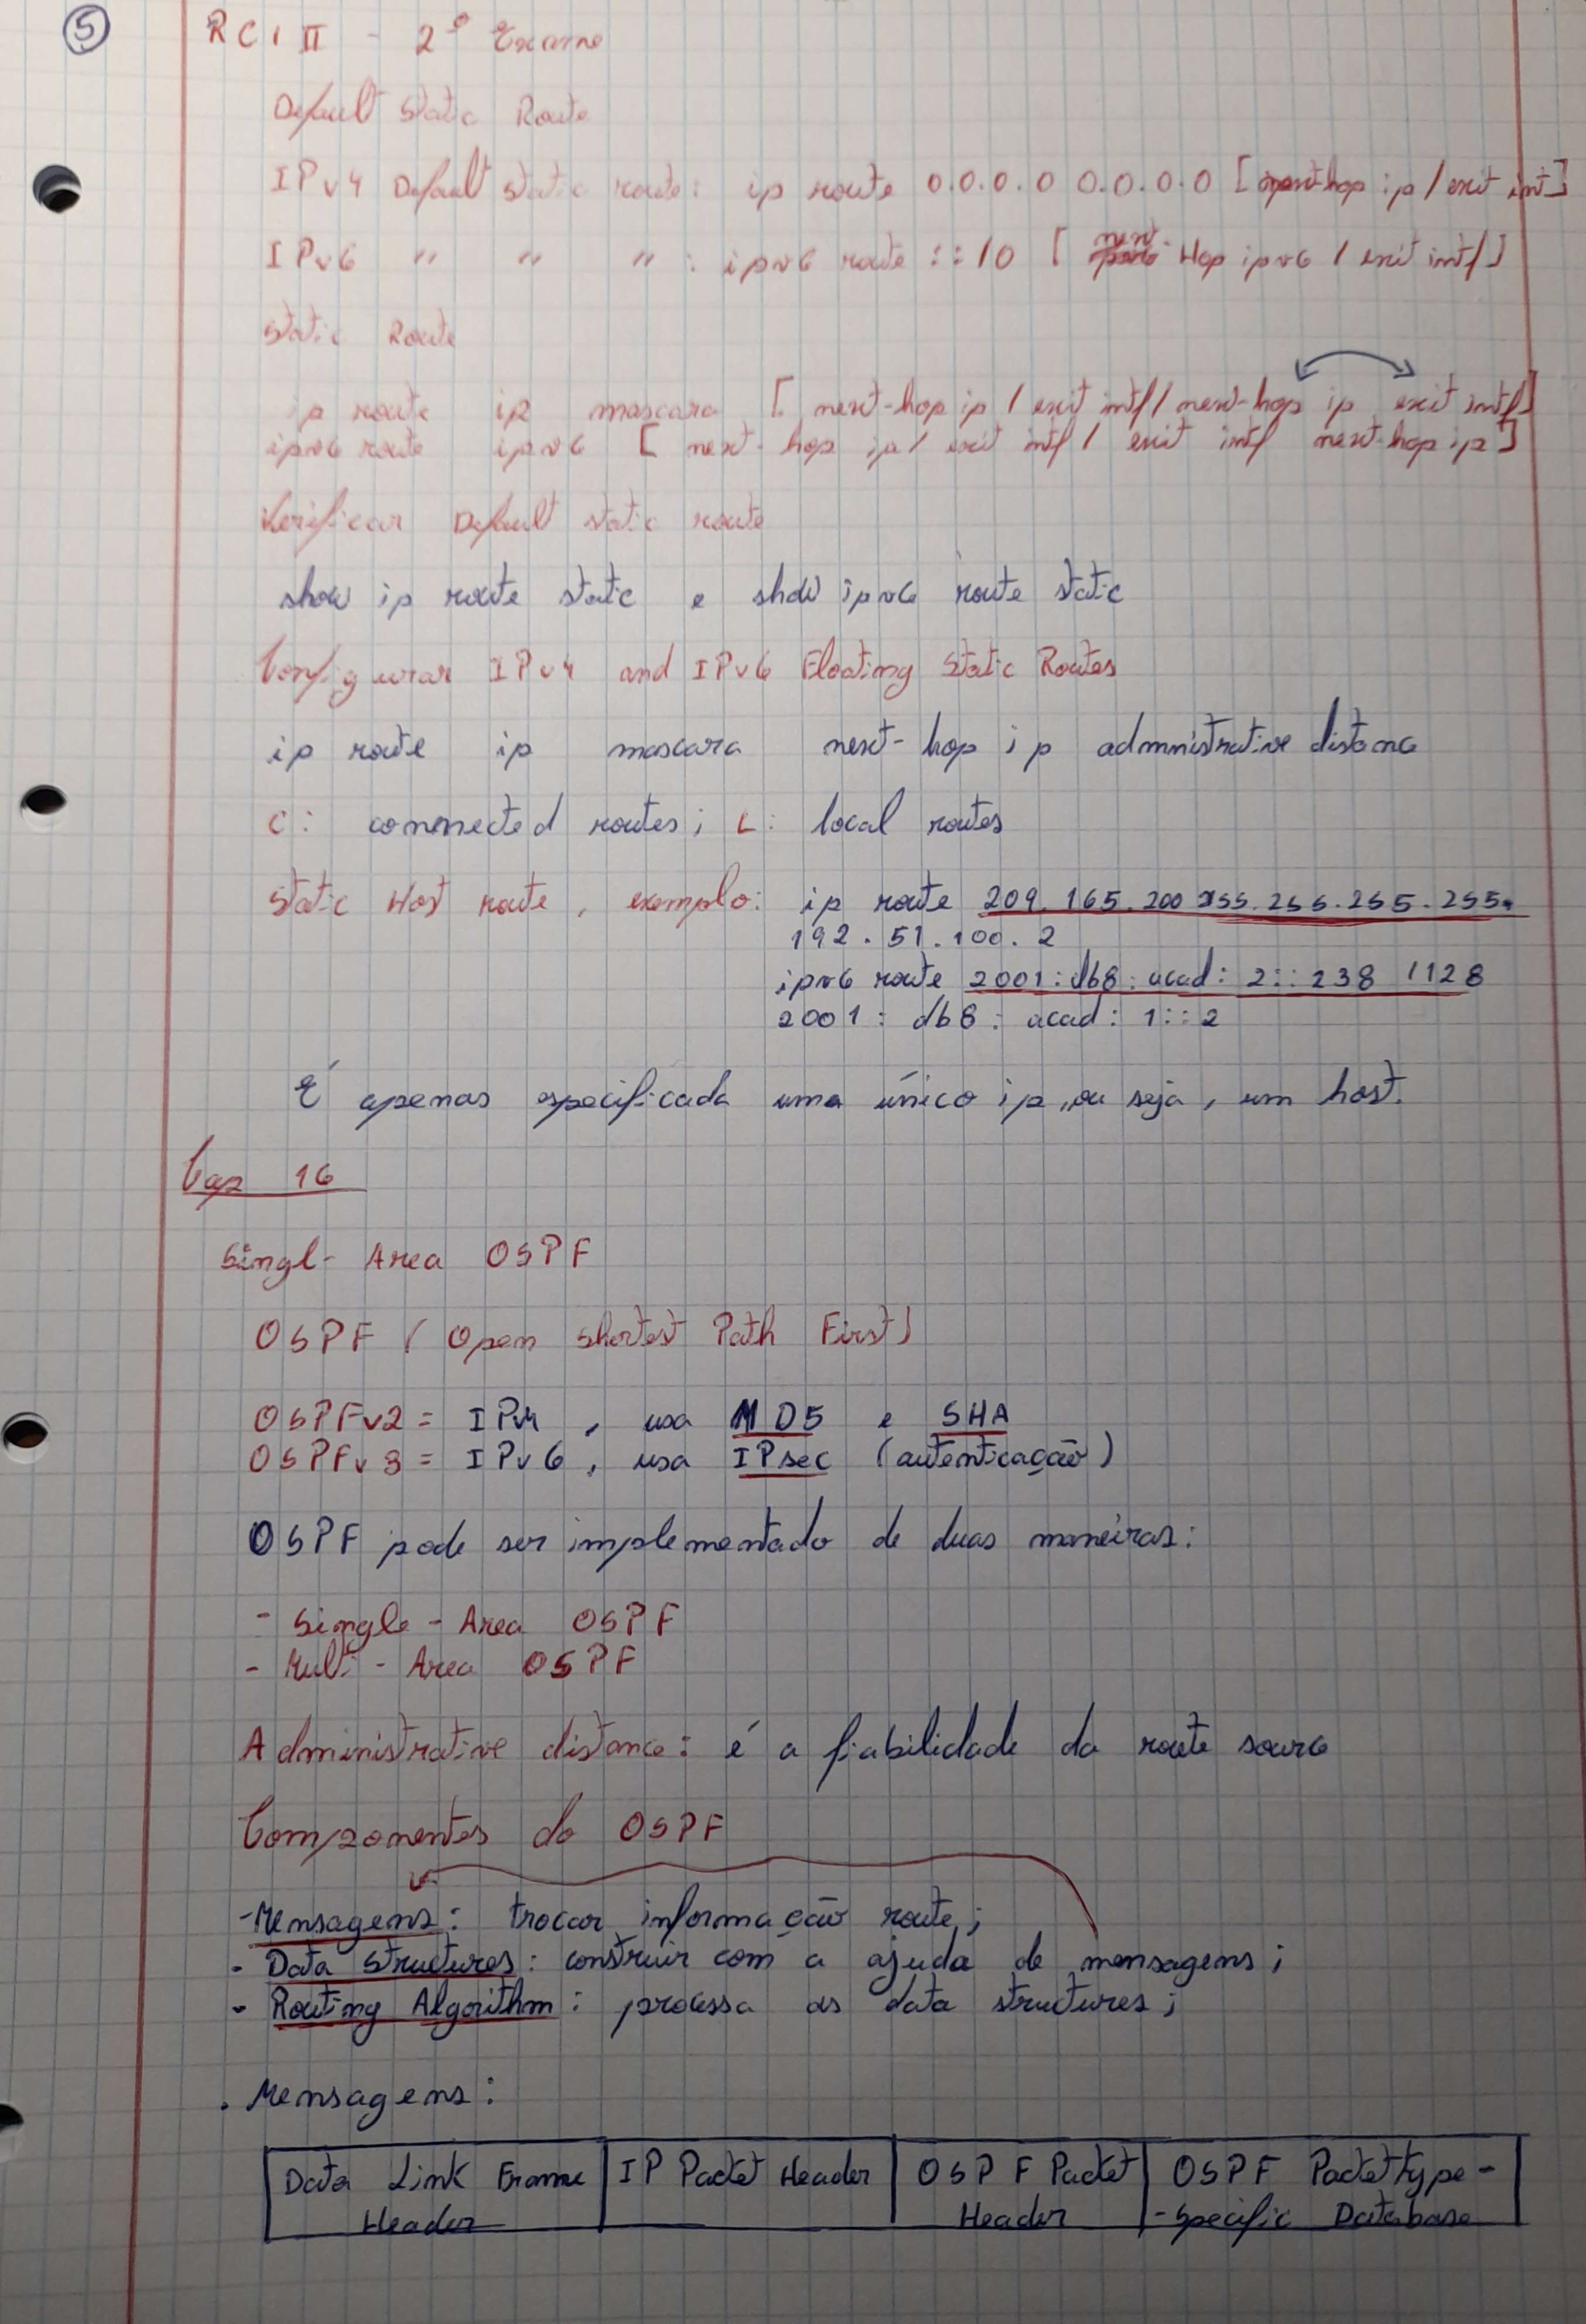 5
RCI II - 2º Exame
Default Static Route
IPv4 Default static route: ip route 0.0.0.0 0.0.0.0 [next-hop ip / exit int]
IPv6 " " " : ipv6 route ::/0 [ next-Hop ipv6 / exit intf]
Static Route
ip route ip mascara [ next-hop ip / exit intf / next-hop ip exit intf]
ipv6 route ipv6 [ next-hop ip / exit intf / exit intf next-hop ip]
Verificar Default static route
show ip route static e show ipv6 route static
Configurar IPv4 and IPv6 Floating Static Routes
ip route ip mascara next-hop ip admnistrative distance
C: connected routes; L: local routes
Static Host route, exemplo: ip route 209.165.200 255.255.255.255.
192.51.100.2
ipv6 route 2001:db8:acad:2::238 /128
2001:db8:acad:1::2
É apenas especificada uma único ip, ou seja, um host.
Cap 16
Singl- Area OSPF
OSPF (Open Shortest Path First)
OSPFv2 = IPv4, usa MD5 e SHA
OSPFv3 = IPv6, usa IPsec (autenticação)
OSPF pode ser implementado de duas maneiras:
- Single - Area OSPF
- Multi - Area OSPF
Administrative distance: é a fiabilidade da route source
Componentes do OSPF
- Mensagens: trocar informação route;
- Data Structures: construir com a ajuda de mensagens;
- Routing Algorithm: processa as data structures;
. Mensagens:
Data Link Frame IP Packet Header OSPF Packet OSPF Packet type-
Header Header -specific Database